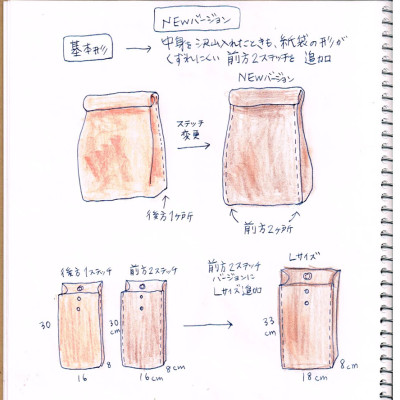 NEWバージョン
基本形 → 中身を沢山入れたときも、紙袋の形が
くずれにくい 前方2ステッチを 追加
NEWバージョン
ステッチ
変更
後方1ヶ所
前方2ヶ所
後方1ステッチ
前方2ステッチ
前方2ステッチ
バージョンに
Lサイズ追加
Lサイズ
30
8
16
30cm
8cm
16cm
33cm
8cm
18cm